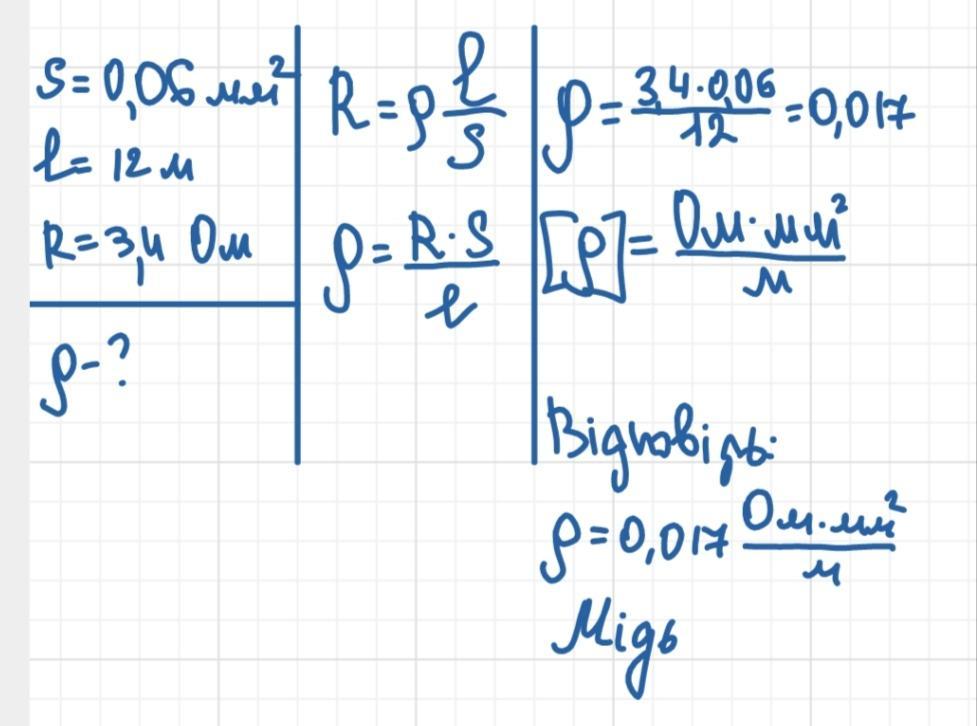 S = 0,06 мм²
ℓ = 12 м
R = 3,4 Ом
ρ - ?
R = ρ ℓ/S
ρ = R · S/ℓ
ρ = 3,4 · 0,06/12 = 0,017
[ρ] = Ом · мм²/м
Відповідь:
ρ = 0,017 Ом · мм²/м
Мідь